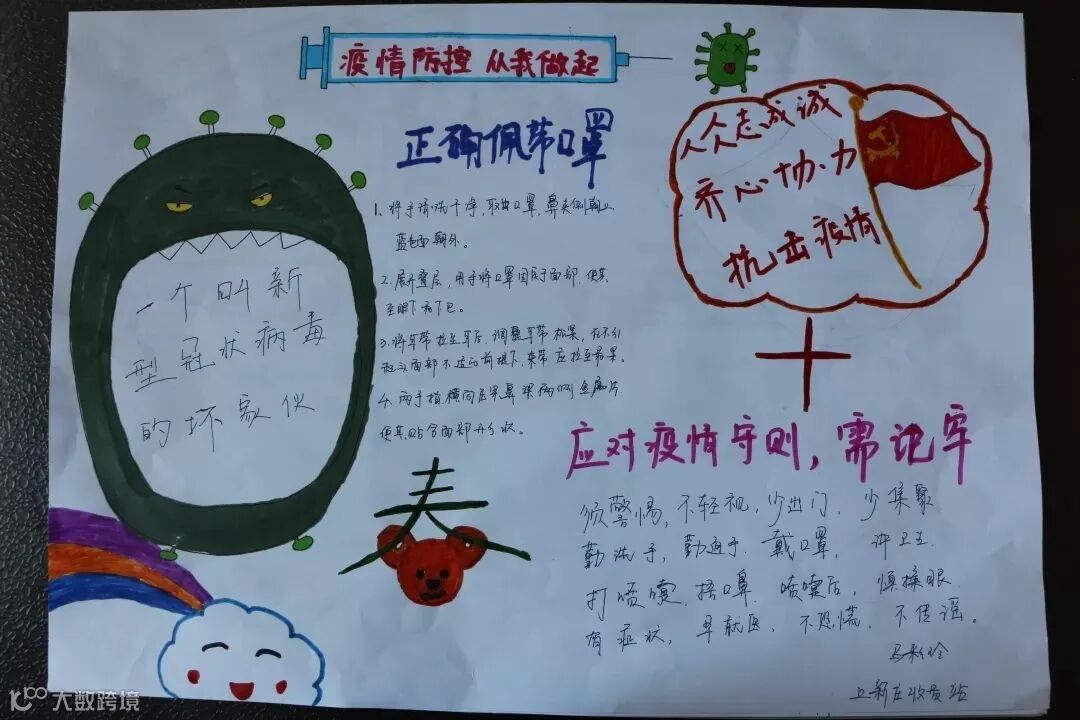 疫情防控 从我做起
正确佩带口罩
1、将手清洗干净,取出口罩,鼻夹侧朝上
蓝色面朝外。
2、展开叠层,用手将口罩固定于面部,使其
至眼下
3、将耳带拉至耳后,调整耳带松紧,在不引
起 面部不适的前提下,
4、两手指横向 鼻梁两侧金属片
使其贴合面部形状。
一个叫新
型冠状病毒
的坏家伙
众志成诚
齐心协力
抗击疫情
应对疫情守则,需记牢
须警惕,不轻视,少出门,少集聚
勤洗手,勤通 戴口罩, 讲卫生
打喷嚏,捂口鼻 喷嚏后,慎揉眼
有症状,早就医,不恐慌,不传谣。
春
上新庄收费站
大数跨境